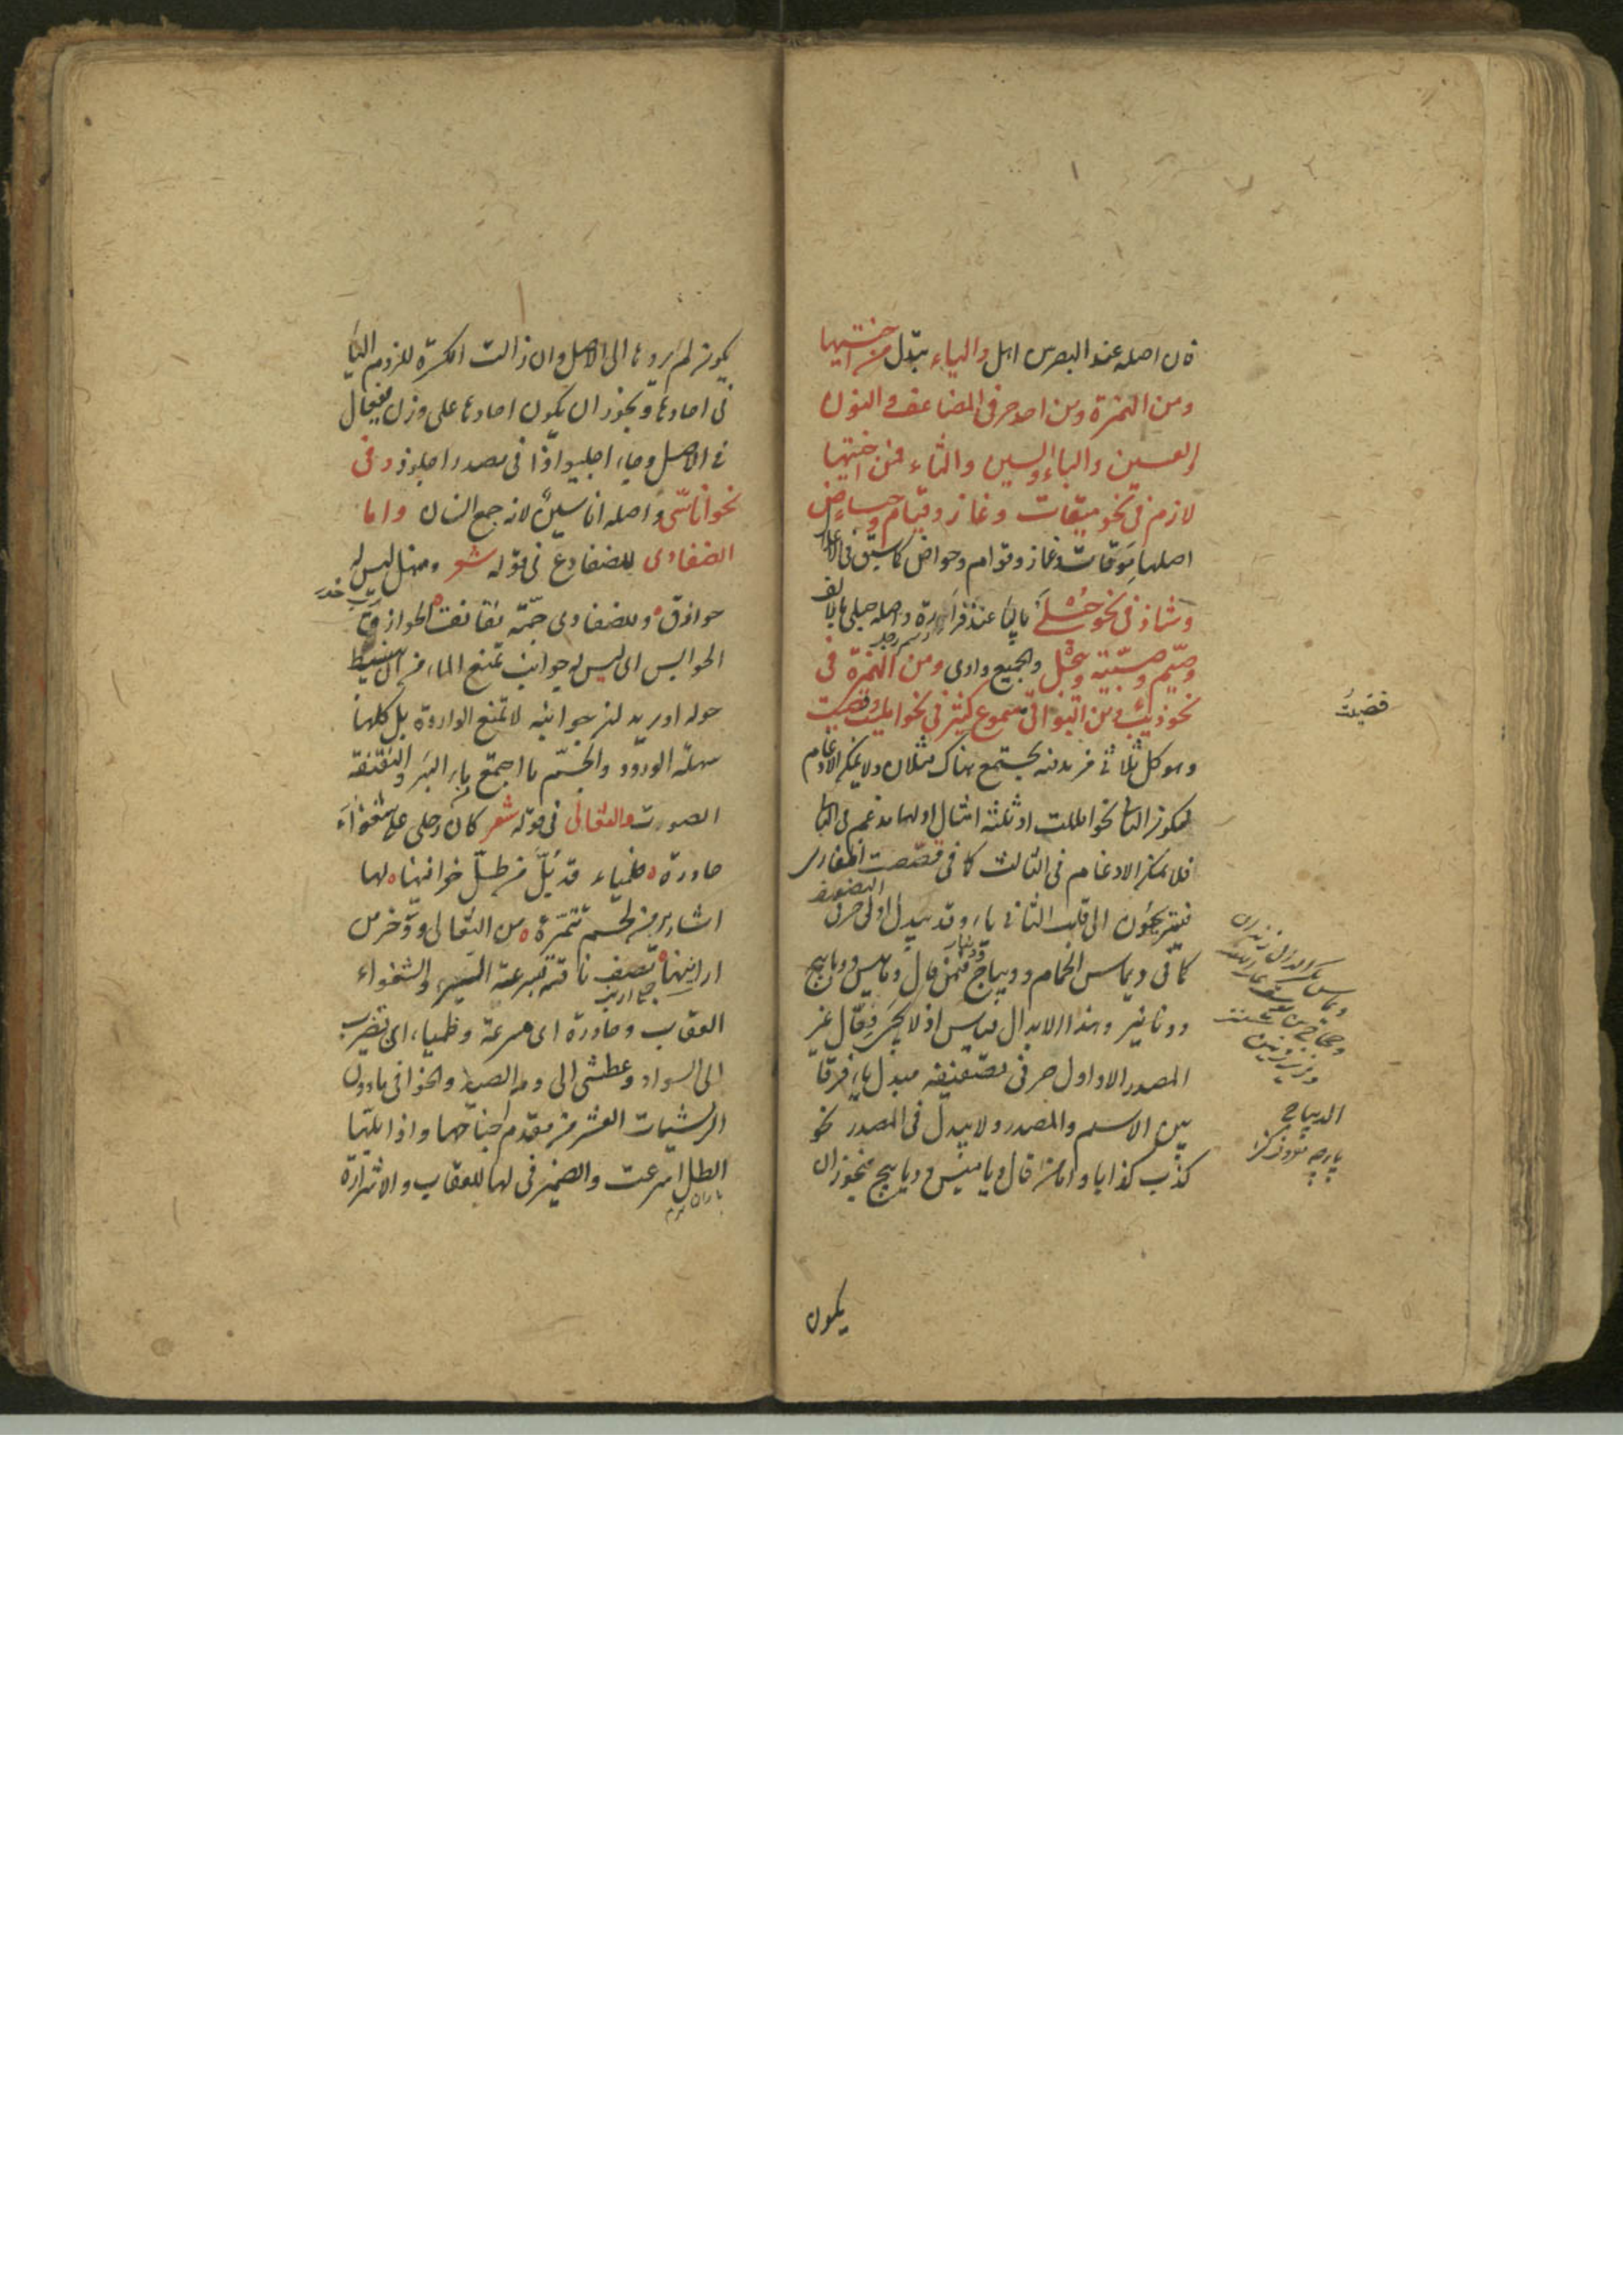 فان اصله عند البصريين اهل والياء تبدل من اختيها
ومن الهمزة ومن احد حرفى المضاعف والنون
والعين والباء والسين والثاء فمن اختيها
لازم فى نحو ميقات وغاز وقيام وحياض
اصلها موقات وغازو وقوام وحواض كما سبق فى الاعلال
وشاذ فى نحو حبلى بالياء عند فزارة واصله حبلى بالالف
وصيم وصبية وييجل والجميع واوى ومن الهمزة فى
نحو ذيب ومن البواقى مسموع كثير فى نحو امليت وقصيت
وهو كل ثلاثى مزيد فيه يجتمع هناك مثلان ولا يمكن الادغام
لسكون الثانى نحو امللت او ثلثة امثال اولها مدغم فى الثانى
فلا يمكن الادغام فى الثالث كما فى قصصت اظفارى
فيلتجئون الى قلب الثانى ياء وقد يبدل اولى حرفى التضعيف
كما فى ديماس الحمام وديباج ودينار فيمن قال دماميس ودبابيج
ودنانير وهذا الابدال قياس اذ لا يجئ فعال غير
المصدر الا واول حرفى تضعيفه مبدل ياء فرقا
بين الاسم والمصدر ولا يبدل فى المصدر نحو
كذب كذابا واما من قال دياميس وديابيج فيجوز ان
يكون
قضيت
الديباج
يكون لم يردها الى الاصل وان زالت الكسرة للزوم الياء
فى احادها ويجوز ان يكون احادها على وزن فيعال
فى الاصل وجاء اجليواذا فى مصدر اجلوذ وفى
نحو اناسى واصله اناسين لانه جمع انسان واما
الضفادى للضفادع فى قوله شعر ومنهل ليس له
حوازق وللضفادى جمه نقانق الحوازق
الحوابس اى ليس له جوانب تمنع الماء من ان ينبسط
حوله او يريد ان جوانبه لا تمنع الواردة بل كلها
سهلة الورود والجم ما اجتمع ماء البئر والنقنقة
الصوت والثعالى فى قوله شعر كان رحلى على شغواء
حادرة ظمياء قد بل من طل خوافيها لها
اشارير من لحم تتمره من الثعالى ووخز من
ارانيها تصف ناقته بسرعة السير والشغواء
جمع ارنب
العقاب وحادرة اى مسرعة وظمياء اى تضرب
الى السواد وعطشى الى دم الصيد والخوافى ما دون
الريشات العشر من مقدم جناحها واذا بلها
الطل اسرعت والضمير فى لها للعقاب والاشرارة
باران نرم